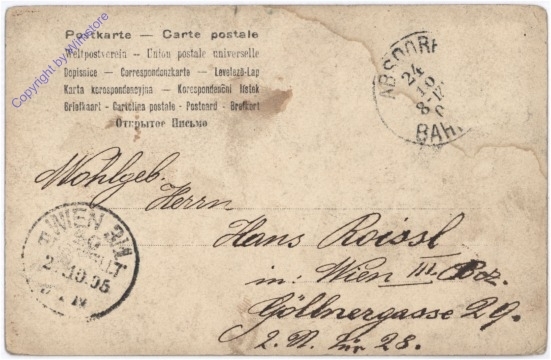 Postkarte — Carte postale
Weltpostverein — Union postale universelle
Dopisnice — Correspondenzkarte — Levelező-Lap
Karta korespondencyjna — Korespondenční lístek
Briefkaart - Cartolina postale - Postcard - Brefkort
Открытое Письмо
Copyright by Winstore
ABSDORF
24
10
BAH
Wohlgeb.
Herrn
Hans Roissl
in: Wien III. Bez.
Göllnergasse 29.
2. St. Tür 28.
WIEN
10.05